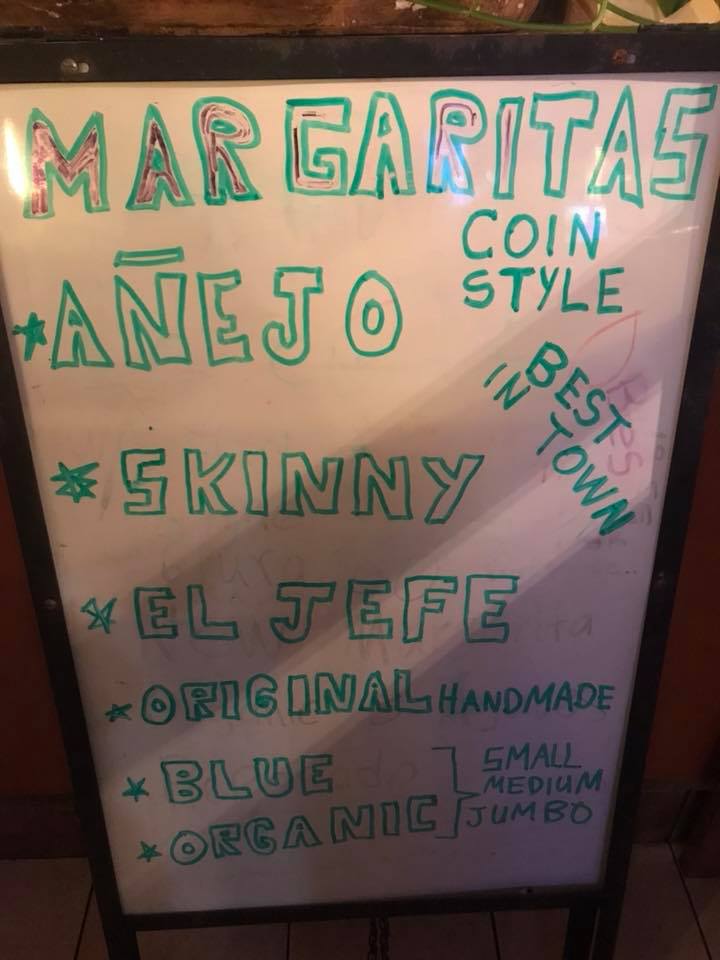 MARGARITAS
COIN
STYLE
*AÑEJO
BEST
IN TOWN
*SKINNY
*EL JEFE
*ORIGINAL HANDMADE
*BLUE
*ORGANIC
SMALL
MEDIUM
JUMBO